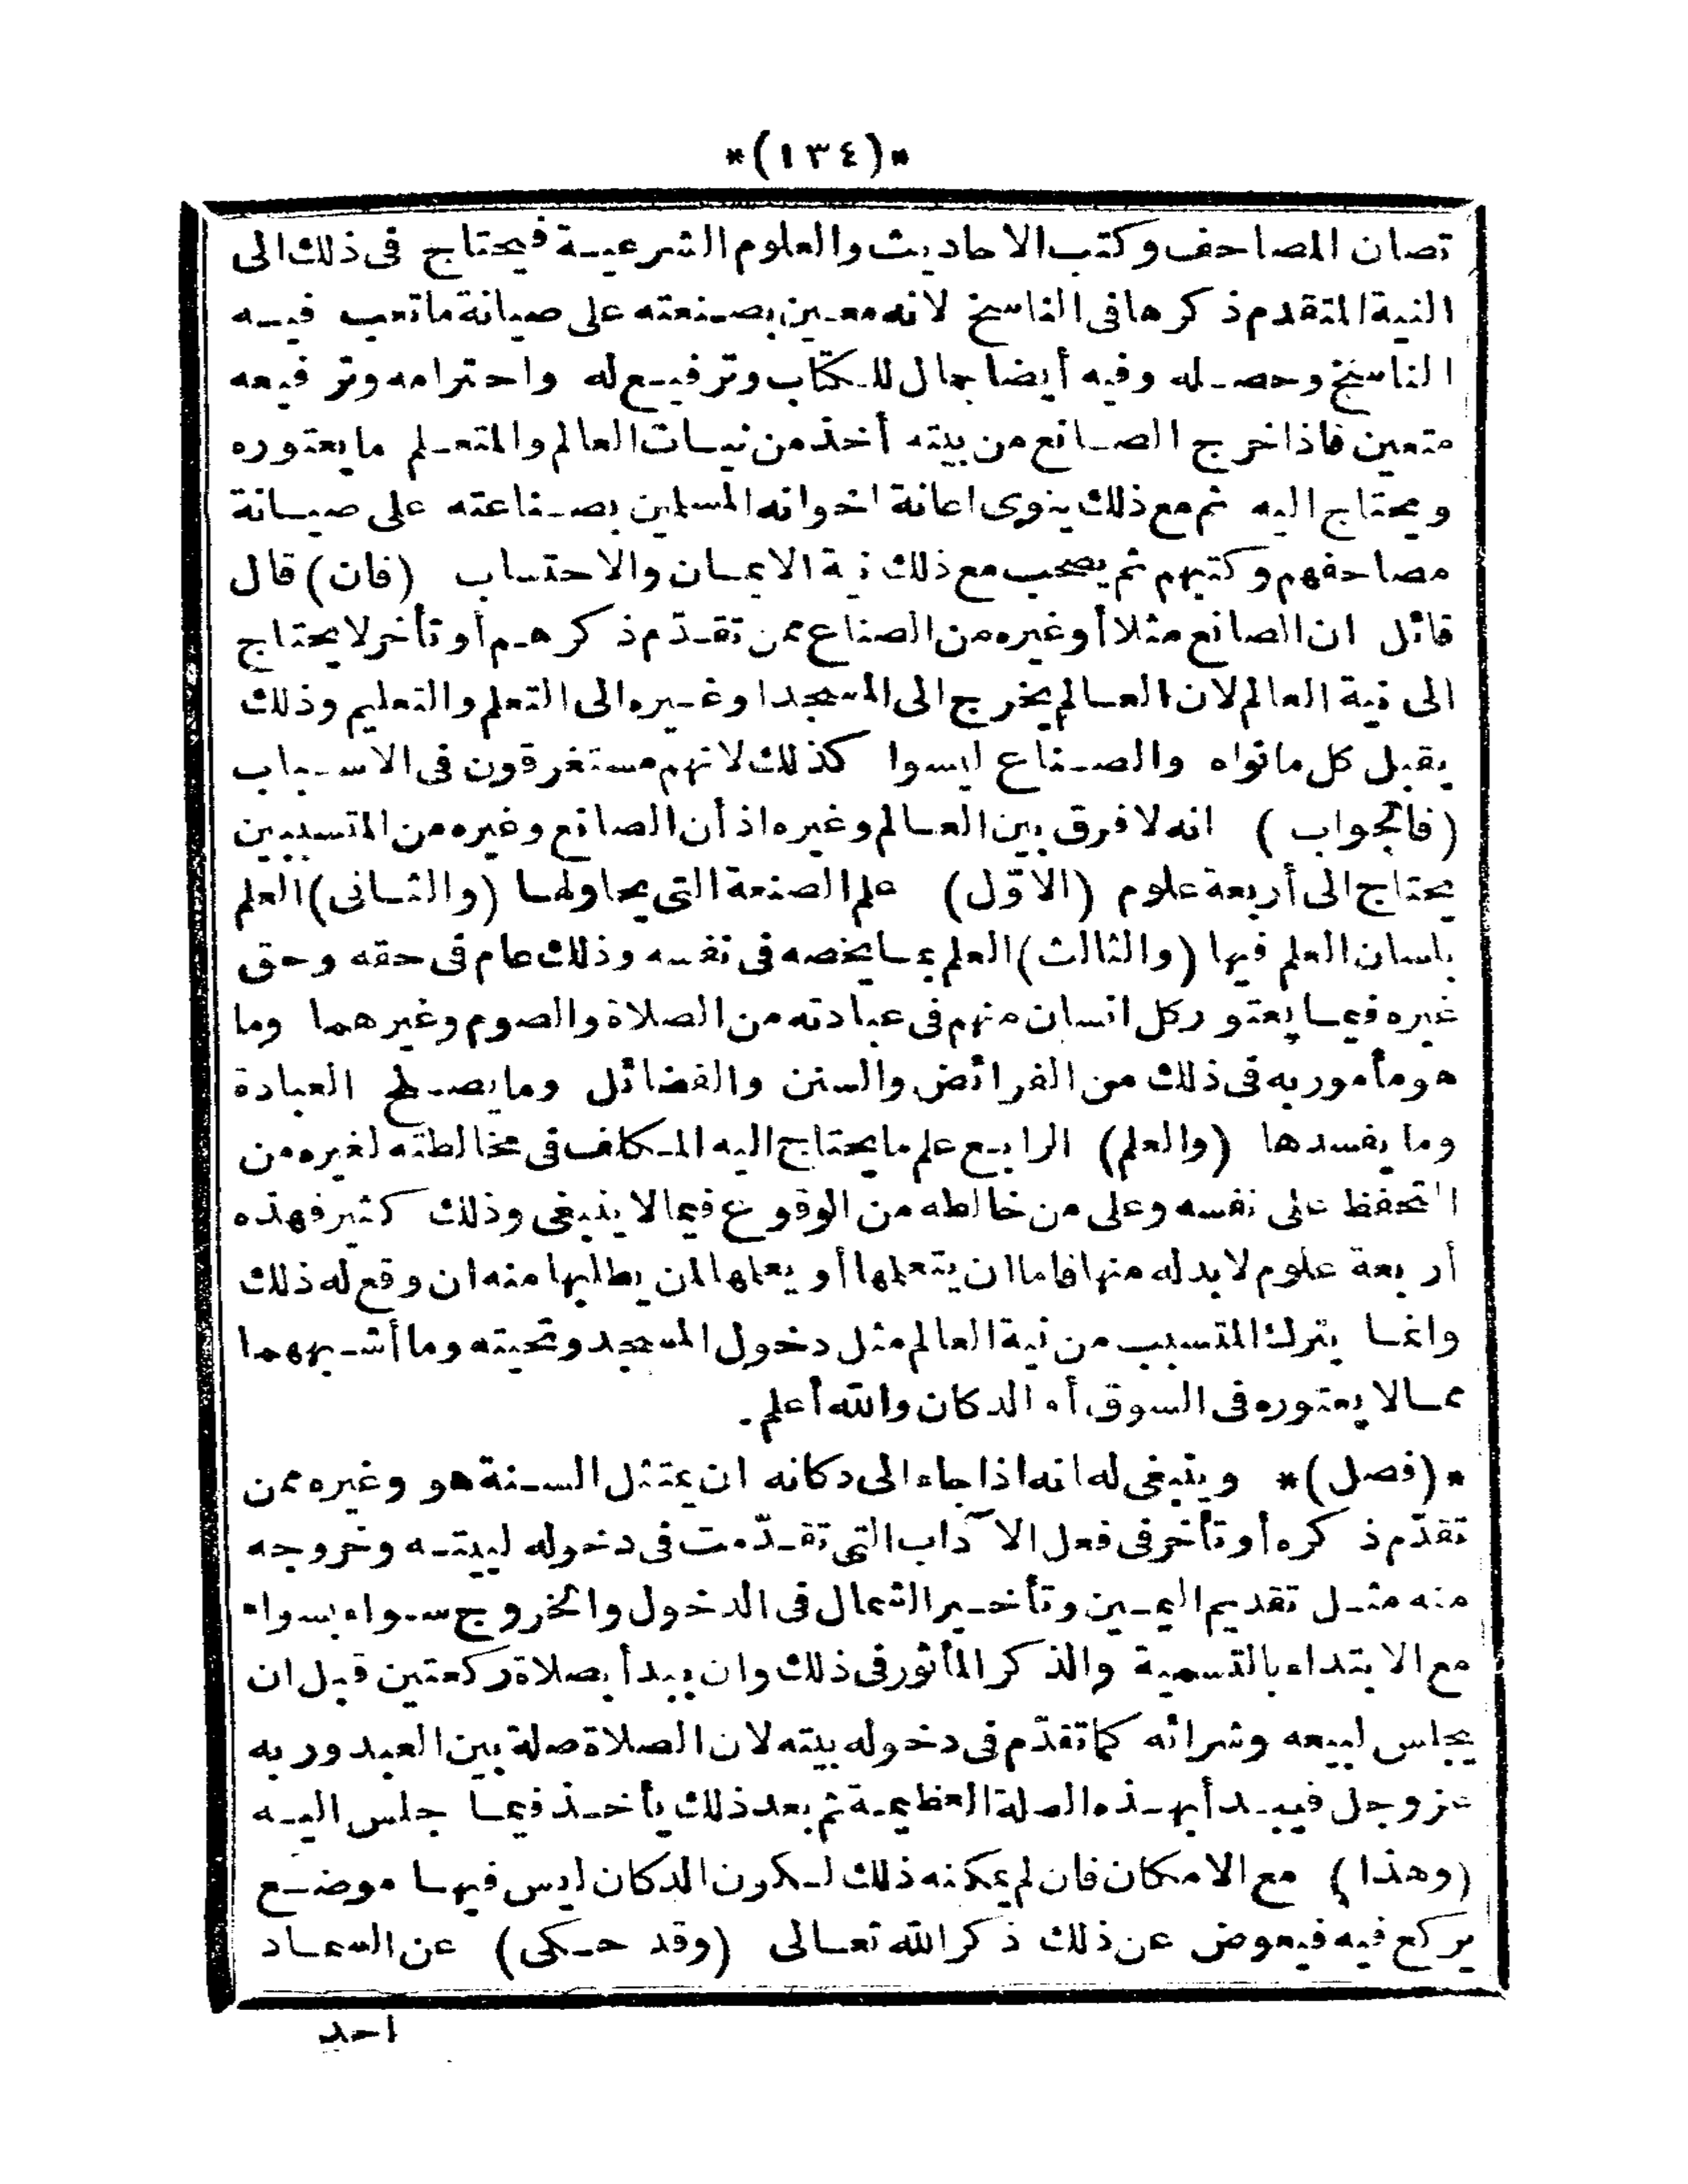 *(١٣٤)*
تصان المصاحف وكتب الاحاديث والعلوم الشرعية فيحتاج فى ذلك الى
النية المتقدم ذكرها فى الناسخ لانه معين بصنعته على صيانة ما تعب فيه
الناسخ وحصله وفيه أيضا جمال للكتاب وترفيع له واحترامه وترفيعه
متعين فاذا خرج الصانع من بيته أخذ من نيات العالم والمتعلم ما يعتوره
ويحتاج اليه ثم مع ذلك ينوى اعانة اخوانه المسلمين بصناعته على صيانة
مصاحفهم وكتبهم ثم يصحب مع ذلك نية الايمان والاحتساب (فان) قال
قائل ان الصانع مثلا أو غيره من الصناع ممن تقدّم ذكرهم أو تأخر لا يحتاج
الى نية العالم لان العالم يخرج الى المسجد او غيره الى التعلم والتعليم وذلك
يقبل كل ما نواه والصناع ليسوا كذلك لانهم مستغرقون فى الاسباب
(فالجواب) انه لا فرق بين العالم وغيره اذ أن الصانع وغيره من المتسببين
يحتاج الى أربعة علوم (الاوّل) علم الصنعة التى يحاولها (والثانى) العلم
بلسان العلم فيها (والثالث) العلم بما يخصه فى نفسه وذلك عام فى حقه وحق
غيره فيما يعتور كل انسان منهم فى عبادته من الصلاة والصوم وغيرهما وما
هو مأمور به فى ذلك من الفرائض والسنن والفضائل وما يصلح العبادة
وما يفسدها (والعلم) الرابع علم ما يحتاج اليه المكلف فى مخالطته لغيره من
التحفظ على نفسه وعلى من خالطه من الوقوع فيما لا ينبغى وذلك كثير فهذه
أربعة علوم لا بد له منها فاما ان يتعلمها أو يعلمها لمن يطلبها منه ان وقع له ذلك
وانما يترك المتسبب من نية العالم مثل دخول المسجد وتحيته وما أشبههما
مما لا يعتوره فى السوق أو الدكان والله أعلم.
*(فصل)* وينبغى له انه اذا جاء الى دكانه ان يمتثل السنة هو وغيره ممن
تقدّم ذكره أو تأخر فى فعل الآداب التى تقدّمت فى دخوله لبيته وخروجه
منه مثل تقديم اليمين وتأخير الشمال فى الدخول والخروج سواء بسواء
مع الابتداء بالتسمية والذكر المأثور فى ذلك وان يبدأ بصلاة ركعتين قبل ان
يجلس لبيعه وشرائه كما تقدّم فى دخوله بيته لان الصلاة صلة بين العبد وربه
عز وجل فيبدأ بهذه الصلة العظيمة ثم بعد ذلك يأخذ فيما جلس اليه
(وهذا) مع الامكان فان لم يمكنه ذلك لكون الدكان ليس فيها موضع
يركع فيه فيعوض عن ذلك ذكر الله تعالى (وقد حكى) عن السماد
احد